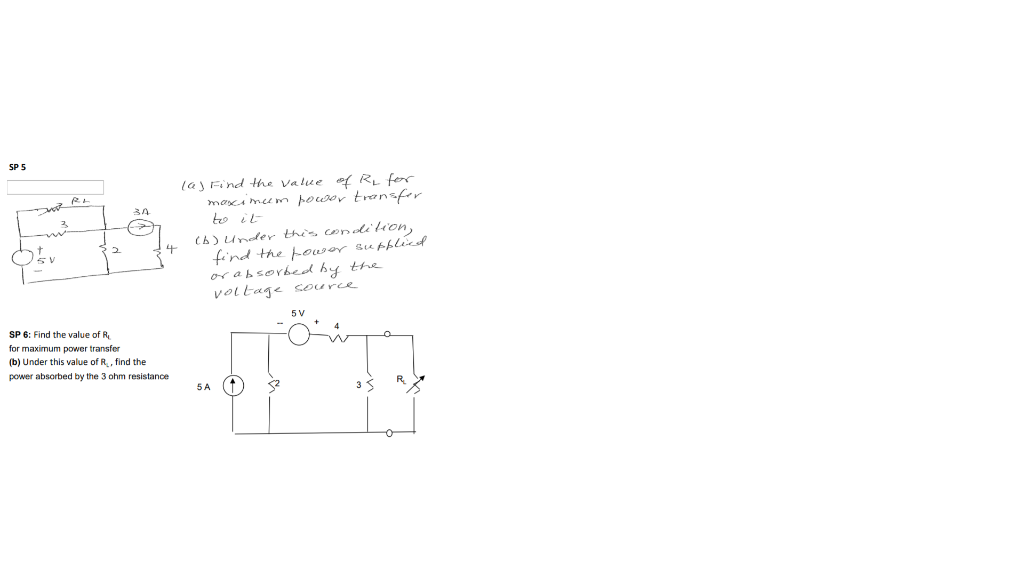 SP 5
(a) Find the value of RL for
maximum power transfer
to it
(b) Under this condition,
find the power supplied
or absorbed by the
voltage source
RL
3
3A
+
5 V
-
2
4
SP 6: Find the value of RL
for maximum power transfer
(b) Under this value of RL, find the
power absorbed by the 3 ohm resistance
5 V
-
+
4
5 A
2
3
RL